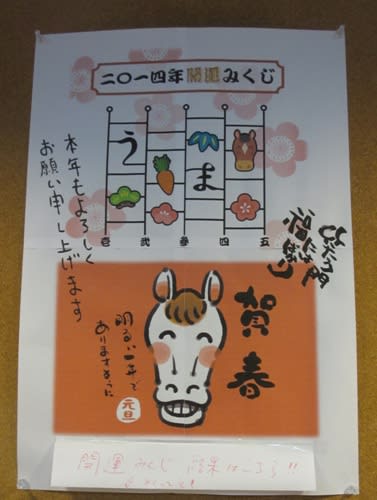 二〇一四年開運みくじ
う
ま
壱 弐 参 四 五
本年もよろしく
お願い申し上げます
賀春
明るい一年で
ありますように
元旦
開運みくじ 結果はこちら!!